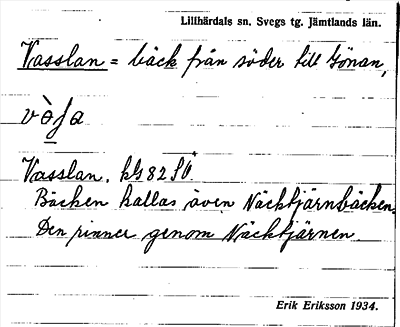 Lillhärdals sn. Svegs tg. Jämtlands län.
Vasslan = bäck från söder till Lönan,
Vasslan. kbl 82 SV.
Bäcken kallas även Näcktjärnbäcken.
Den rinner genom Näcktjärnen
Erik Eriksson 1934.